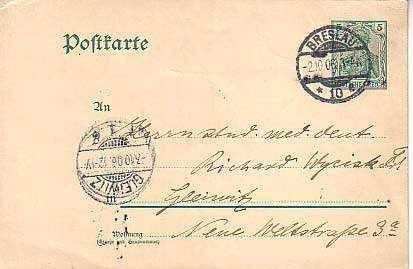 Postkarte
5
BRESLAU
-2.10.06.
* 10 *
An
Herrn stud. med. dent.
GLEIWITZ
-2.10.06. 12-1V.
Richard
Gleiwitz
Wohnung
(Straße und Hausnummer)
Neue Weltstraße 3a